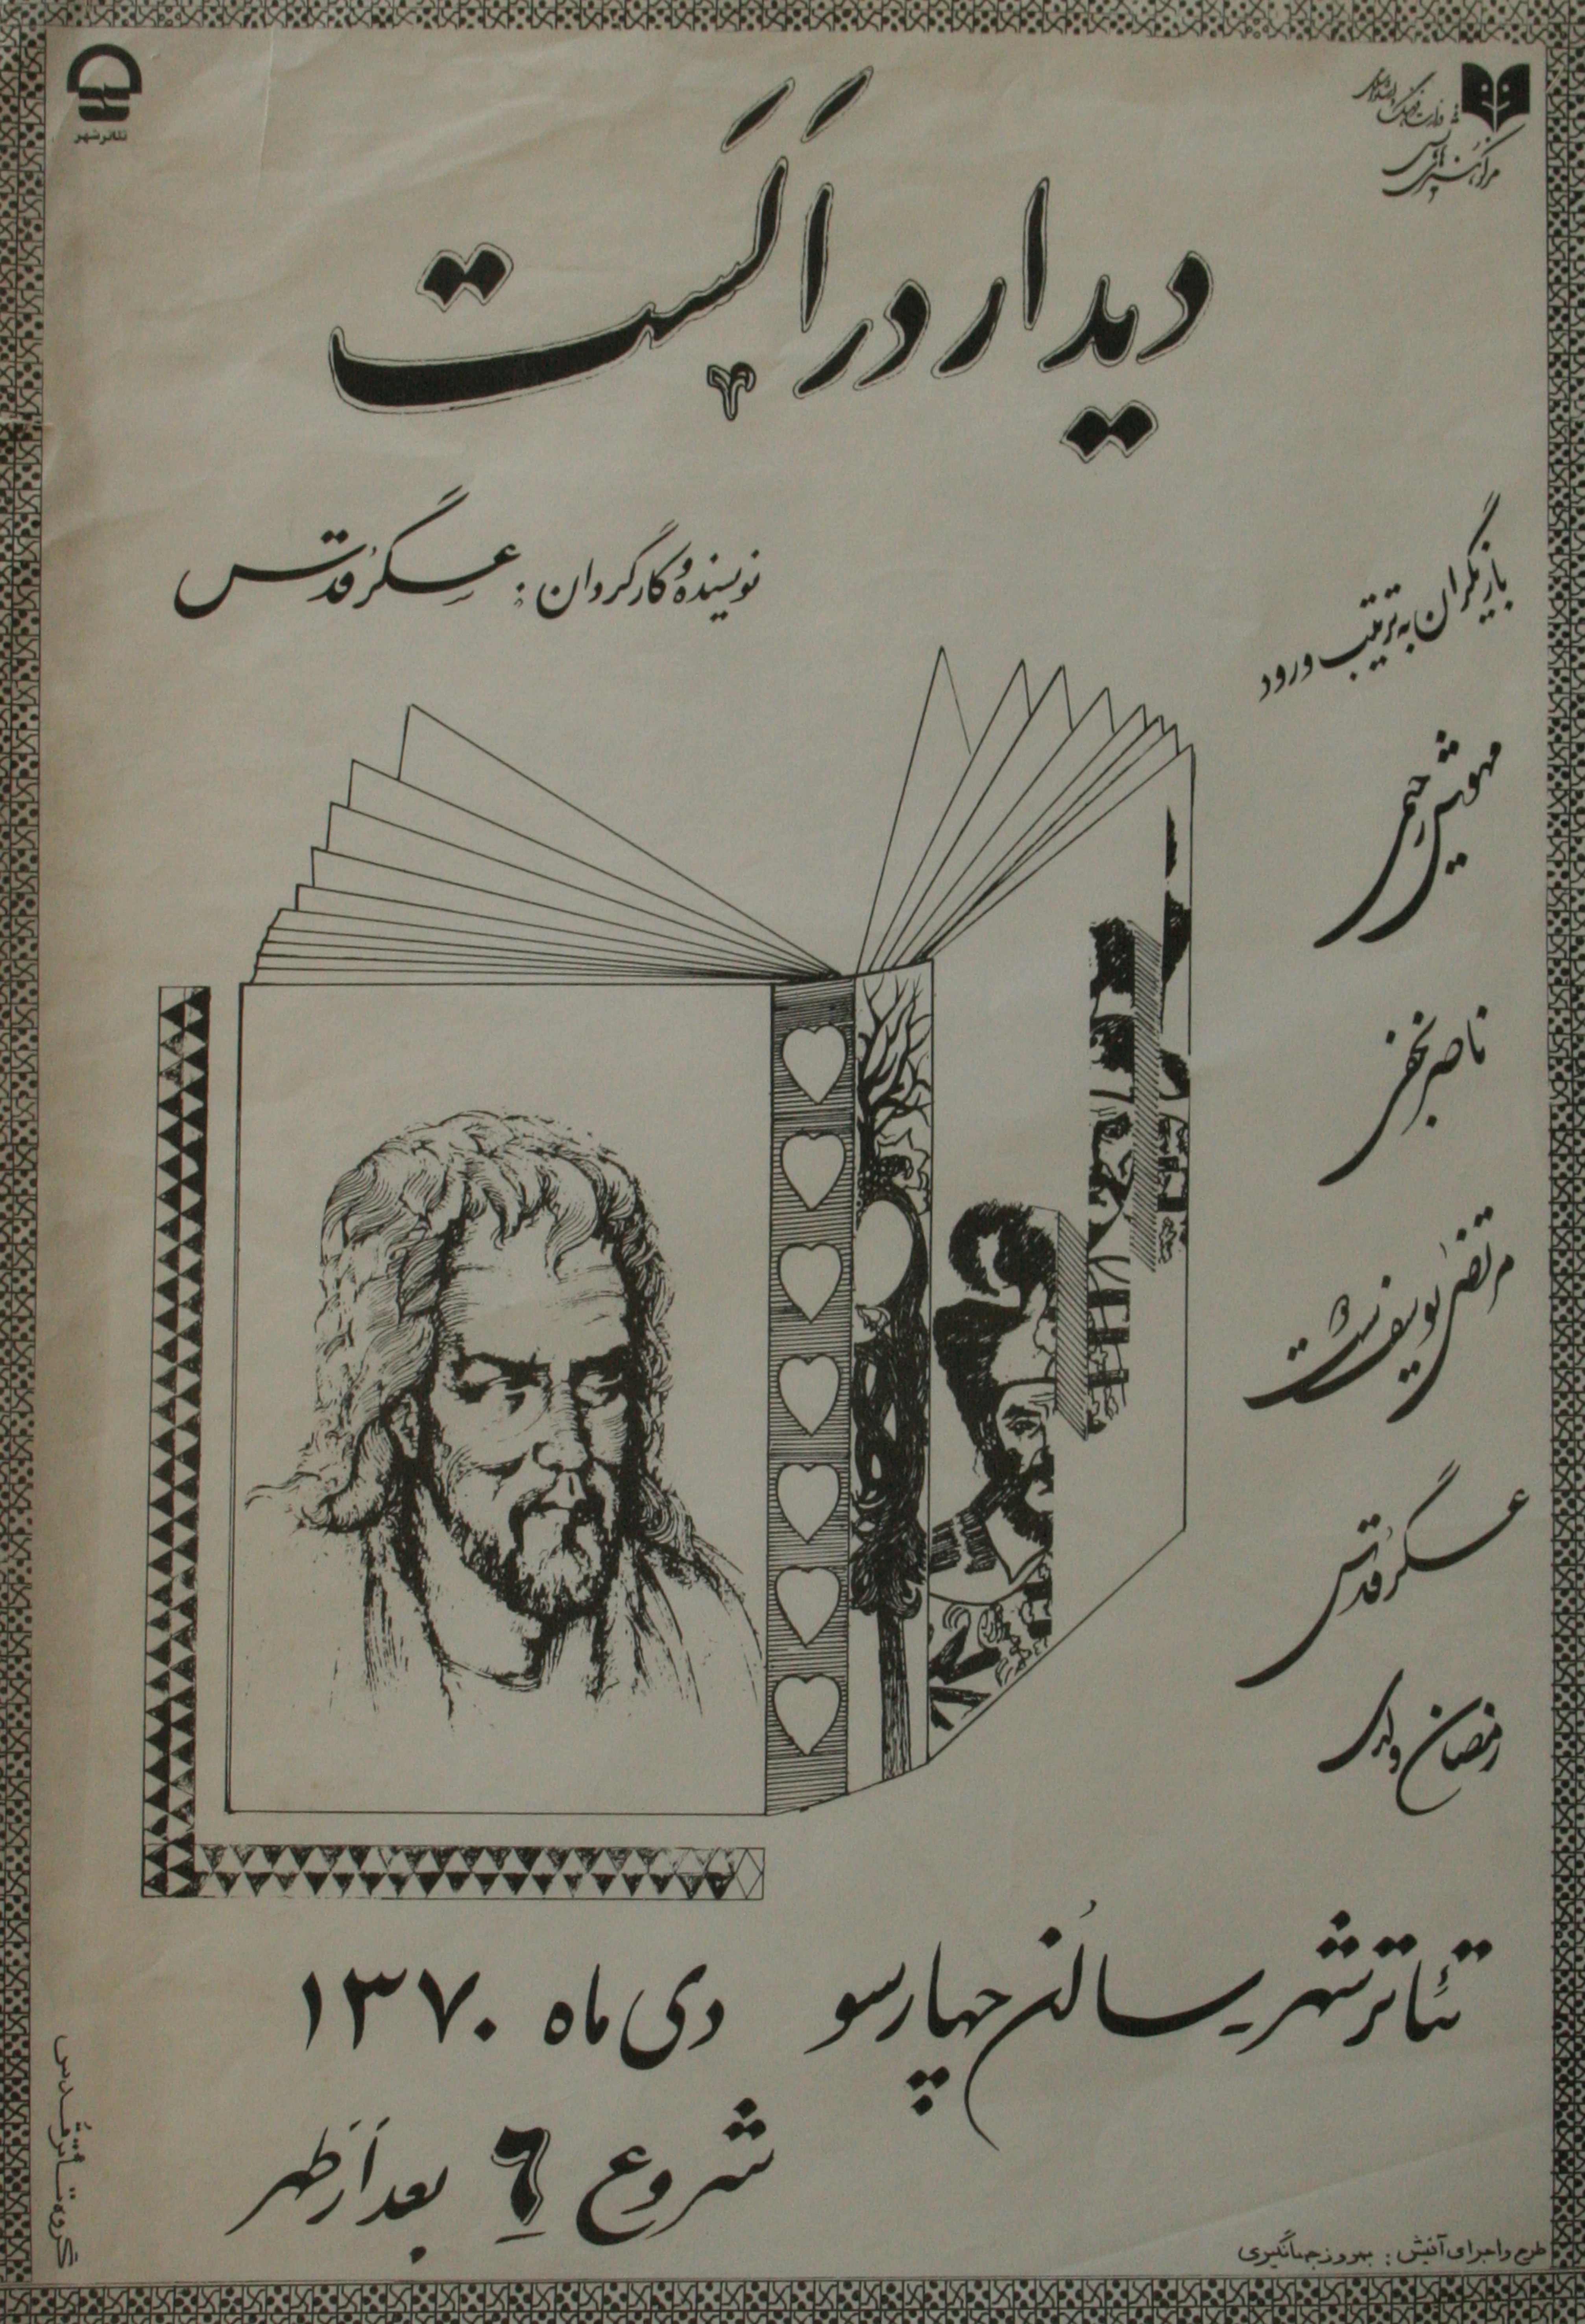 وزارت فرهنگ و ارشاد اسلامی
مرکز هنرهای نمایشی
تئاتر شهر
دیدار در اَلَست
نویسنده و کارگردان : عسگر قدس
بازیگران به ترتیب ورود
مهوش رحیمی
ناصر نجفی
مرتضی یوسف دوست
عسگر قدس
رمضان ولدی
تئاتر شهر سالن چهارسو دی ماه ۱۳۷۰
شروع ۶ بعد از ظهر
گروه تئاتر قدس
طرح و اجرای آفیش : بهروز جهانگیری